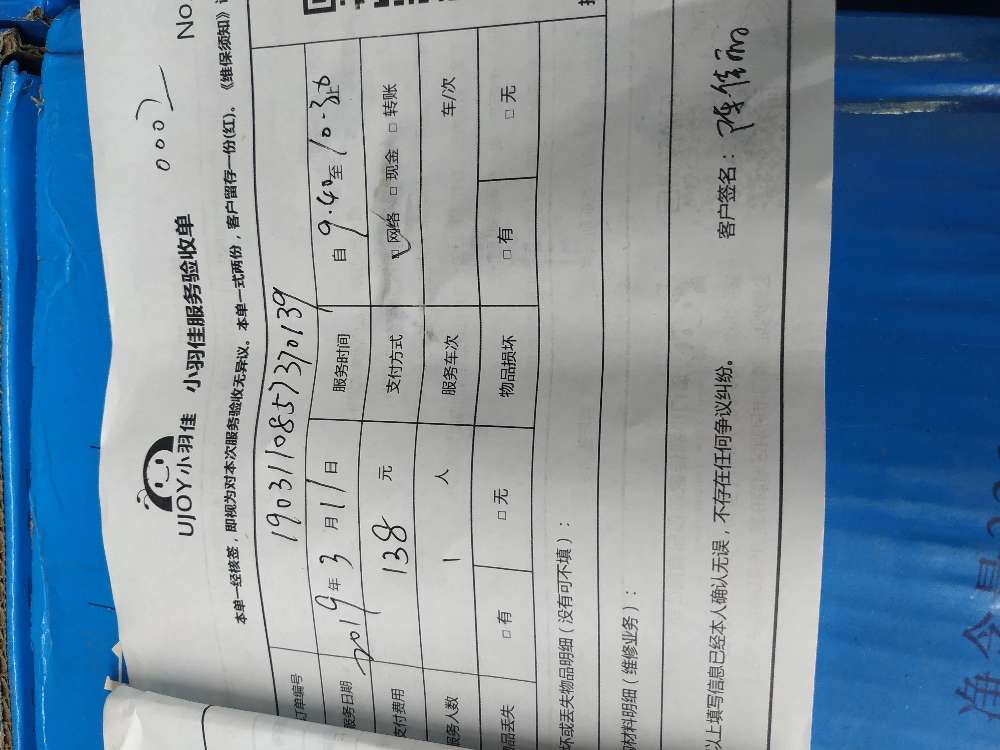 UJOY小羽佳 小羽佳服务验收单 No
0007
本单一经核签，即视为对本次服务验收无异议。本单一式两份，客户留存一份(红)。《维保须知》
订单编号 1903110857370139
服务日期 2019年3月11日 服务时间 自9.40至10.30止
支付费用 138元 支付方式 网络 □现金 □转账
服务人数 1人 服务车次 车/次
物品丢失 □有 □无 物品损坏 □有 □无
坏或丢失物品明细（没有可不填）：
材料明细（维修业务）：
以上填写信息已经本人确认无误，不存在任何争议纠纷。 客户签名：
净含量